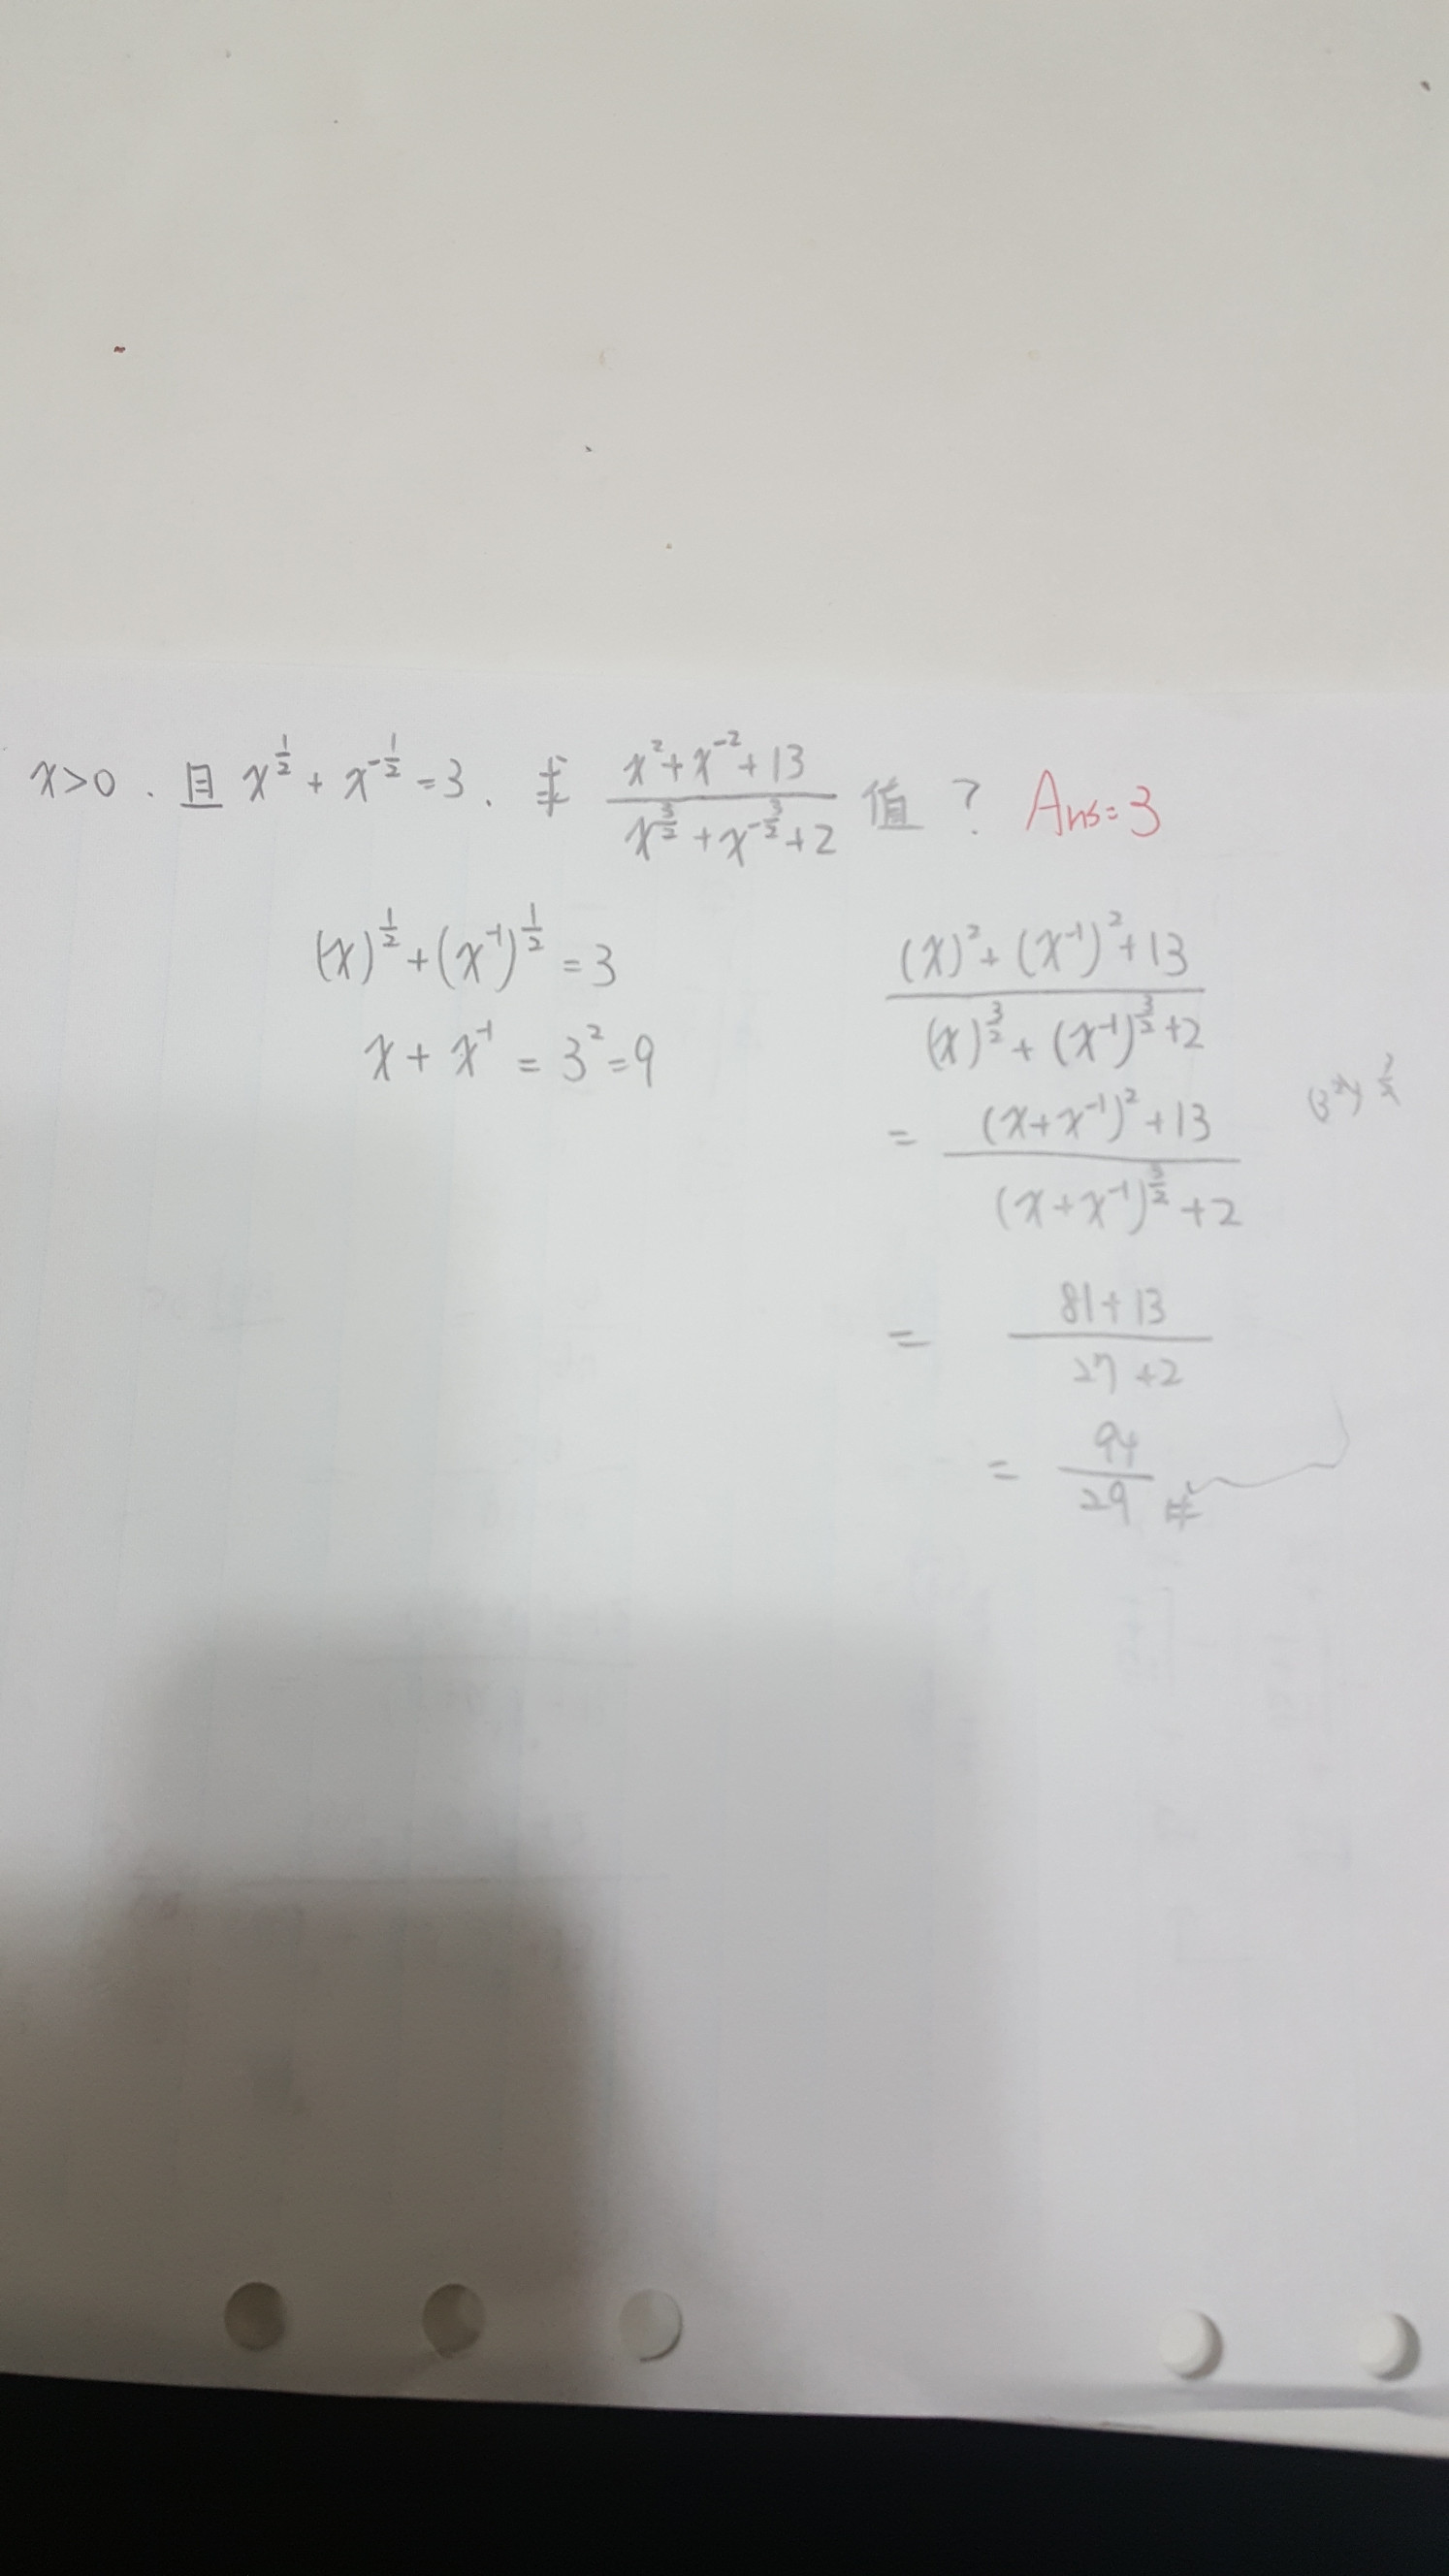 x>0、且 x^{\frac{1}{2}} + x^{-\frac{1}{2}} = 3、求 \frac{x^2+x^{-2}+13}{x^{\frac{3}{2}}+x^{-\frac{3}{2}}+2} 值? Ans=3
(x)^{\frac{1}{2}} + (x^{-1})^{\frac{1}{2}} = 3
x + x^{-1} = 3^2 = 9
\frac{(x)^2+(x^{-1})^2+13}{(x)^{\frac{3}{2}}+(x^{-1})^{\frac{3}{2}}+2}
= \frac{(x+x^{-1})^2+13}{(x+x^{-1})^{\frac{3}{2}}+2}
= \frac{81+13}{27+2}
= \frac{94}{29} #